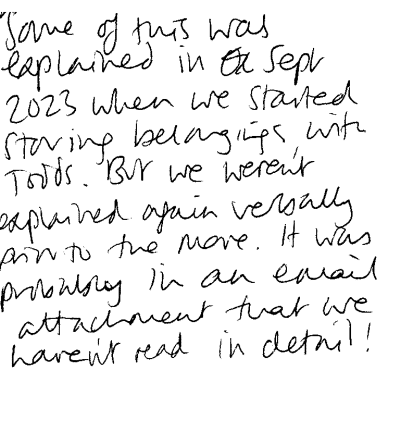 Some of this was
explained in Sept
2023 when we started
storing belongings with
Todds. But we weren't
explained again verbally
prior to the move. It was
probably in an email
attachment that we
haven't read in detail!